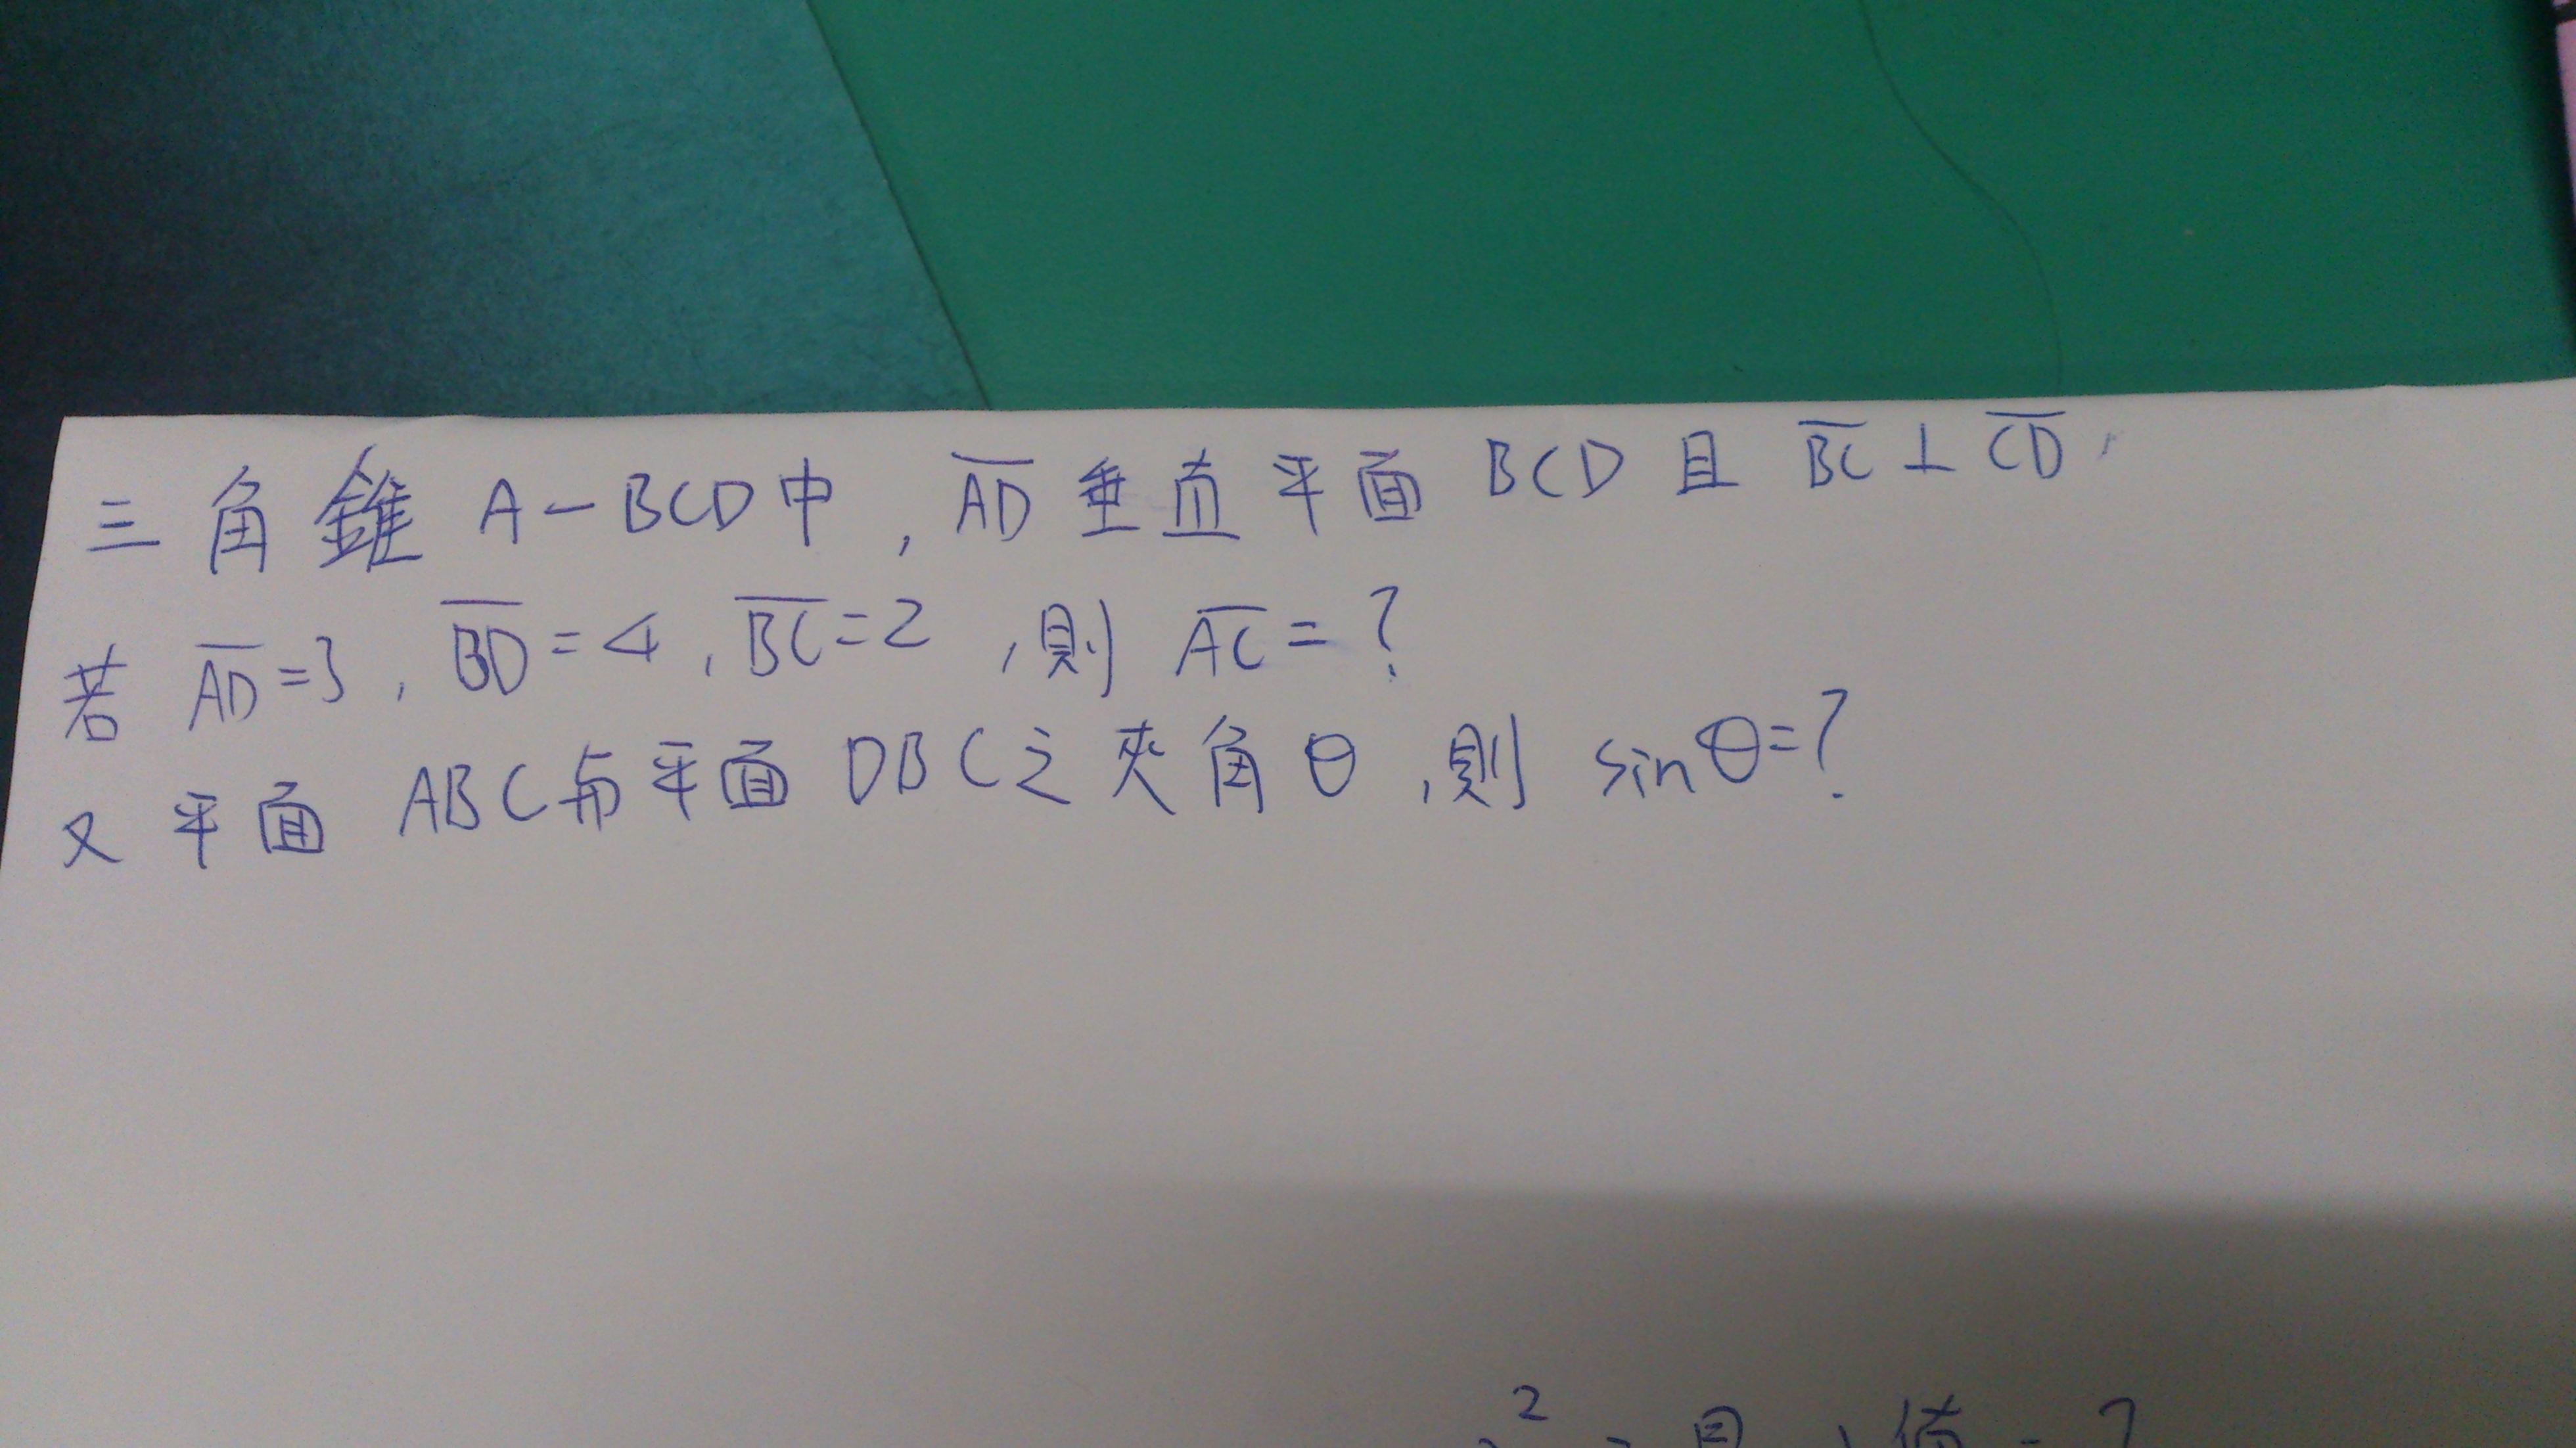 三角錐 A-BCD中, AD 垂直平面 BCD 且 BC⊥CD,
若 AD=3, BD=4, BC=2, 則 AC=?
又平面 ABC与平面 DBC之夾角θ, 則 sinθ=?
2